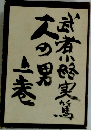 武者小路実篤
一人の男
上巻